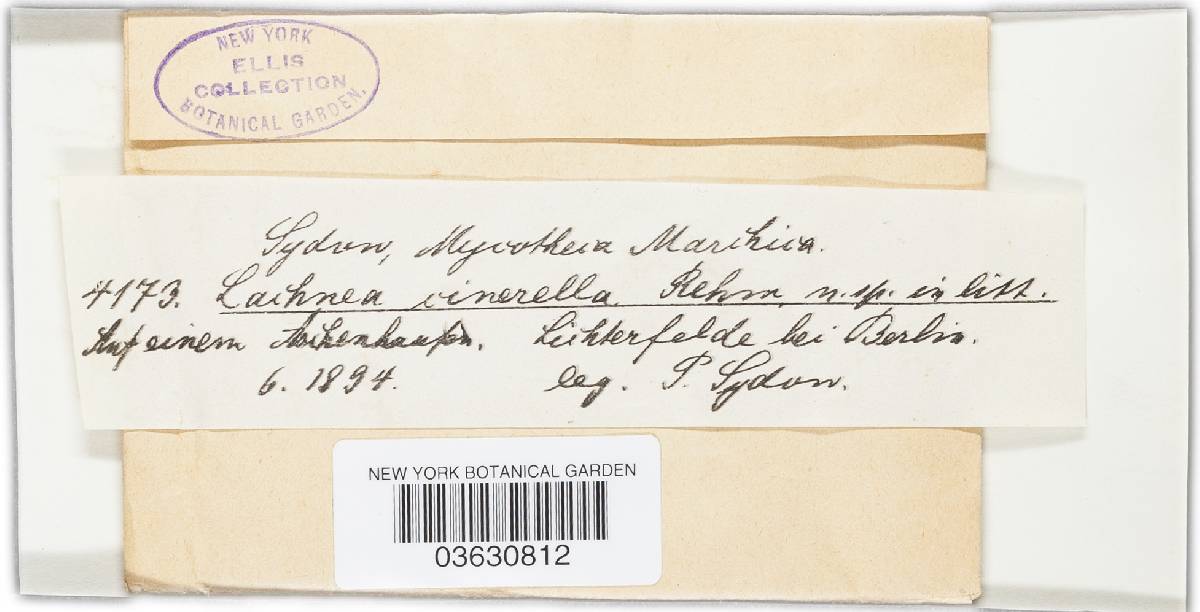 NEW YORK
ELLIS
COLLECTION
BOTANICAL GARDEN.
Sydow, Mycotheca Marchica.
4173. Lachnea cinerella Rehm, n. sp. in litt.
Auf einem Aschenhaufen. Lichterfelde bei Berlin.
6. 1894. leg. P. Sydow.
NEW YORK BOTANICAL GARDEN
03630812